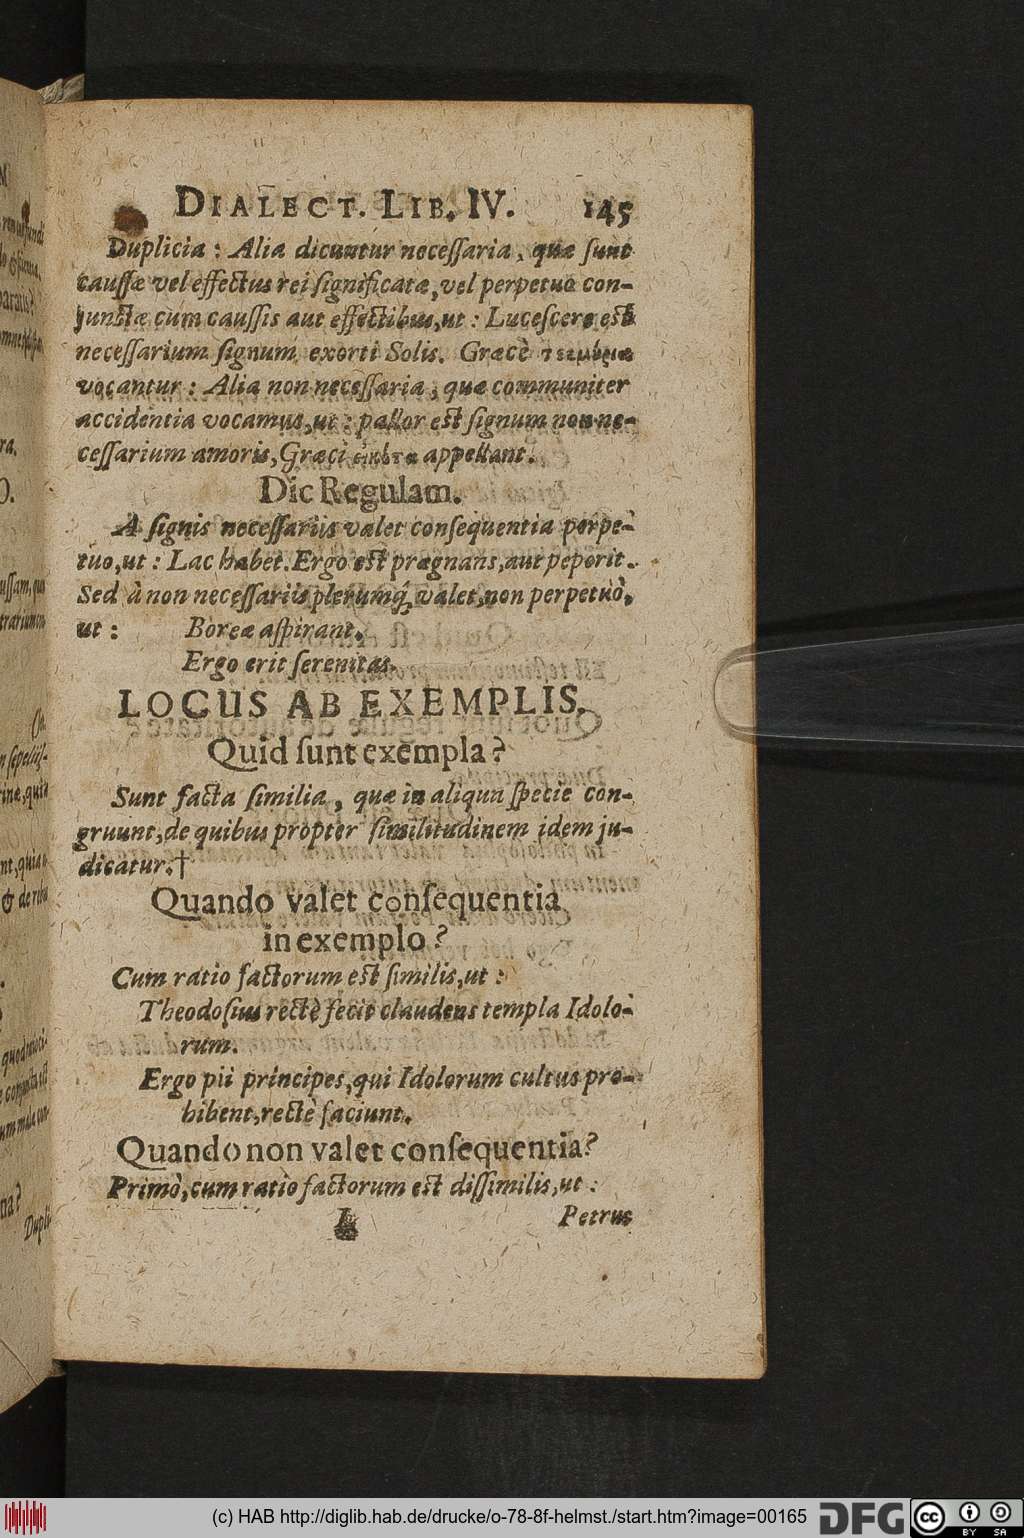 DIALECT. LIB. IV. 145
Duplicia : Alia dicuntur neceſſaria, quæ ſunt
cauſſæ vel effectus rei ſignificatæ, vel perpetuo con-
junctæ cum cauſſis aut effectibus, ut : Luceſcere est
neceſſarium ſignum exorti Solis. Græcè τεκμήρια
vocantur : Alia non neceſſaria, quæ communiter
accidentia vocamus, ut : pallor est ſignum non ne-
ceſſarium amoris, Græci εἰκότα appellant.
Dic Regulam.
A ſignis neceſſariis valet conſequentia perpe-
tuo, ut : Lac habet. Ergo est prægnans, aut peperit.
Sed à non neceſſariis plerumq́; valet, non perpetuò,
ut : Boreæ aſpirant.
Ergo erit ſerenitas.
LOCUS AB EXEMPLIS.
Quid ſunt exempla?
Sunt facta ſimilia, quæ in aliqua ſpecie con-
gruunt, de quibus propter ſimilitudinem idem ju-
dicatur.†
Quando valet conſequentia
in exemplo?
Cum ratio factorum est ſimilis, ut :
Theodoſius rectè fecit claudens templa Idolo-
rum.
Ergo pii principes, qui Idolorum cultus pro-
hibent, rectè faciunt.
Quando non valet conſequentia?
Primò, cum ratio factorum est diſſimilis, ut :
Petrus
(c) HAB http://diglib.hab.de/drucke/o-78-8f-helmst./start.htm?image=00165
DFG
cc BY SA